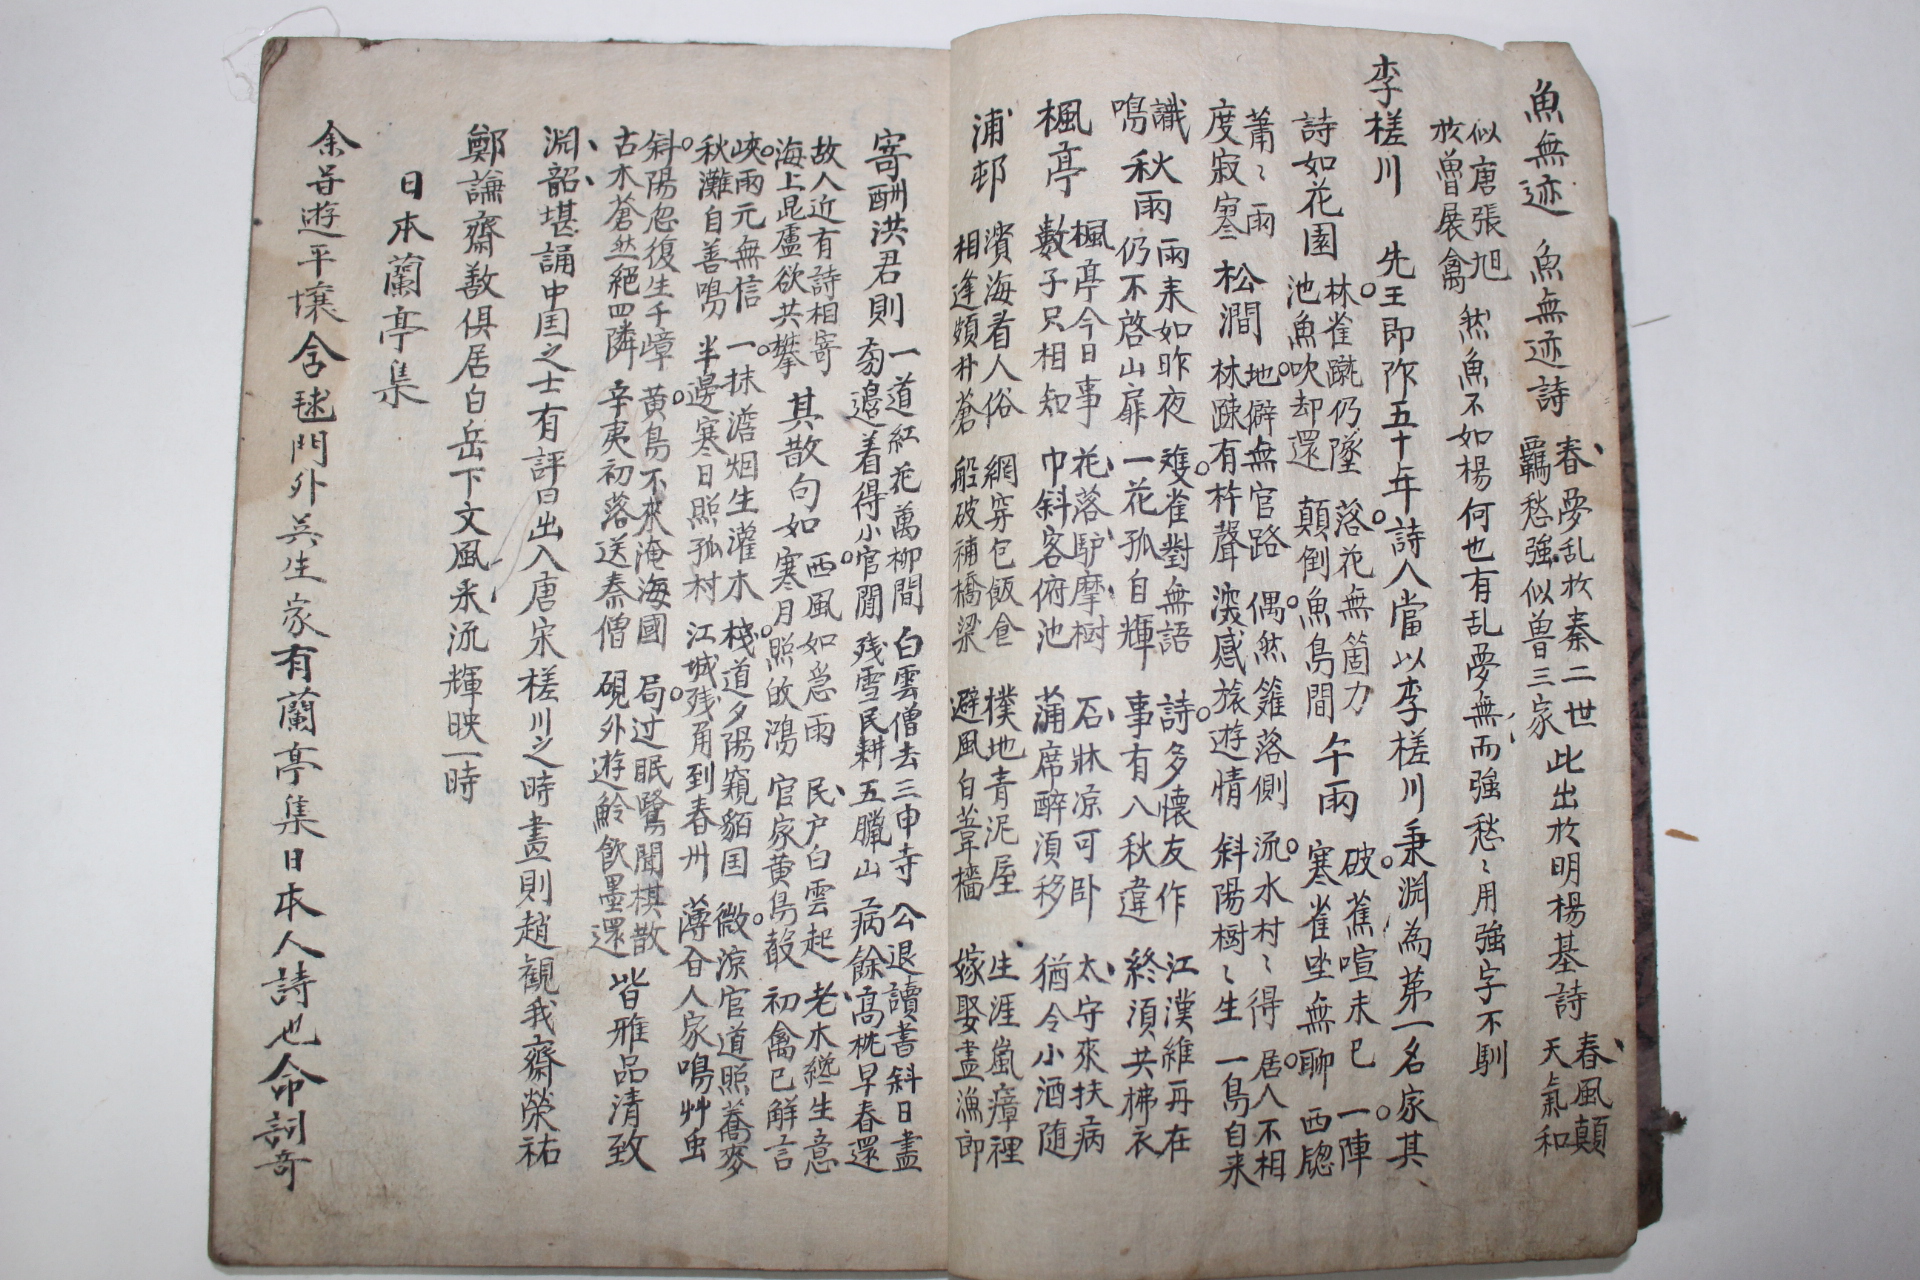 魚無迹 魚無迹詩 春夢乱於秦二世 羈愁強似魯三家 此出於明楊基詩 春風顛 天氣和
似唐張旭 於魯展禽 然魚不如楊何也有乱夢無而強愁〻用強字不馴
李槎川 先王即阼五十年詩人當以李槎川秉淵為第一名家其
詩如花園 林雀蹴仍墜 池魚吹却還 落花無箇力 顛倒魚鳥間 午雨 破蕉喧未已 寒雀坐無聊 一陣 西牕
蕭〻雨 度寂寒 松澗 地僻無官路 林踈有杵聲 偶然籬落側 淡感旅遊情 流水村〻得 斜陽樹〻生 居人不相 一鳥自来
識 鳴 秋雨 雨来如昨夜 仍不啓山扉 雙雀對無語 一花孤自輝 詩多懷友作 事有八秋違 江漢維再在 終須共拂衣
楓亭 楓亭今日事 數子只相知 花落馿摩樹 巾斜客俯池 石牀凉可卧 蒲席醉須移 太守來扶病 猶令小酒随
浦邨 濱海看人俗 相逢頻朴蒼 網穿包飯食 船破補橋梁 樸地青泥屋 避風白葦檣 生涯嵐瘴裡 嫁娶盡漁郎
寄酬洪君則 一道紅花萬柳間 邉着得小官閒 白雲僧去三申寺 残雪民耕五臘山 公退讀書斜日盡 病餘高枕早春還
故人近有詩相寄 海上昆盧欲共攀 其散句如 西風如急雨 寒月照故鴻 民户白雲起 官家黄鳥 老木纔生意 初禽已解言
峽雨元無信 秋灘自善鳴 一抹澹烟生灌木 半邊寒日照孤村 棧道夕陽窺貊国 江城残角到春州 微凉官道照蕎麥 薄合人家鳴艸虫
斜陽忽復生千嶂 古木蒼然絕四隣 黄鳥不來淹海國 辛夷初落送泰僧 局过眠鷺聞棋散 硯外遊鯩飲墨還 皆雅品清致
淵韶堪誦中国之士有評曰出入唐宋槎川之時畫則趙觀我齋榮祐
鄭謙齋敾俱居白岳下文風釆流輝映一時
日本蘭亭集
余昔遊平壤含毬門外吳生家有蘭亭集日本人詩也命詞奇